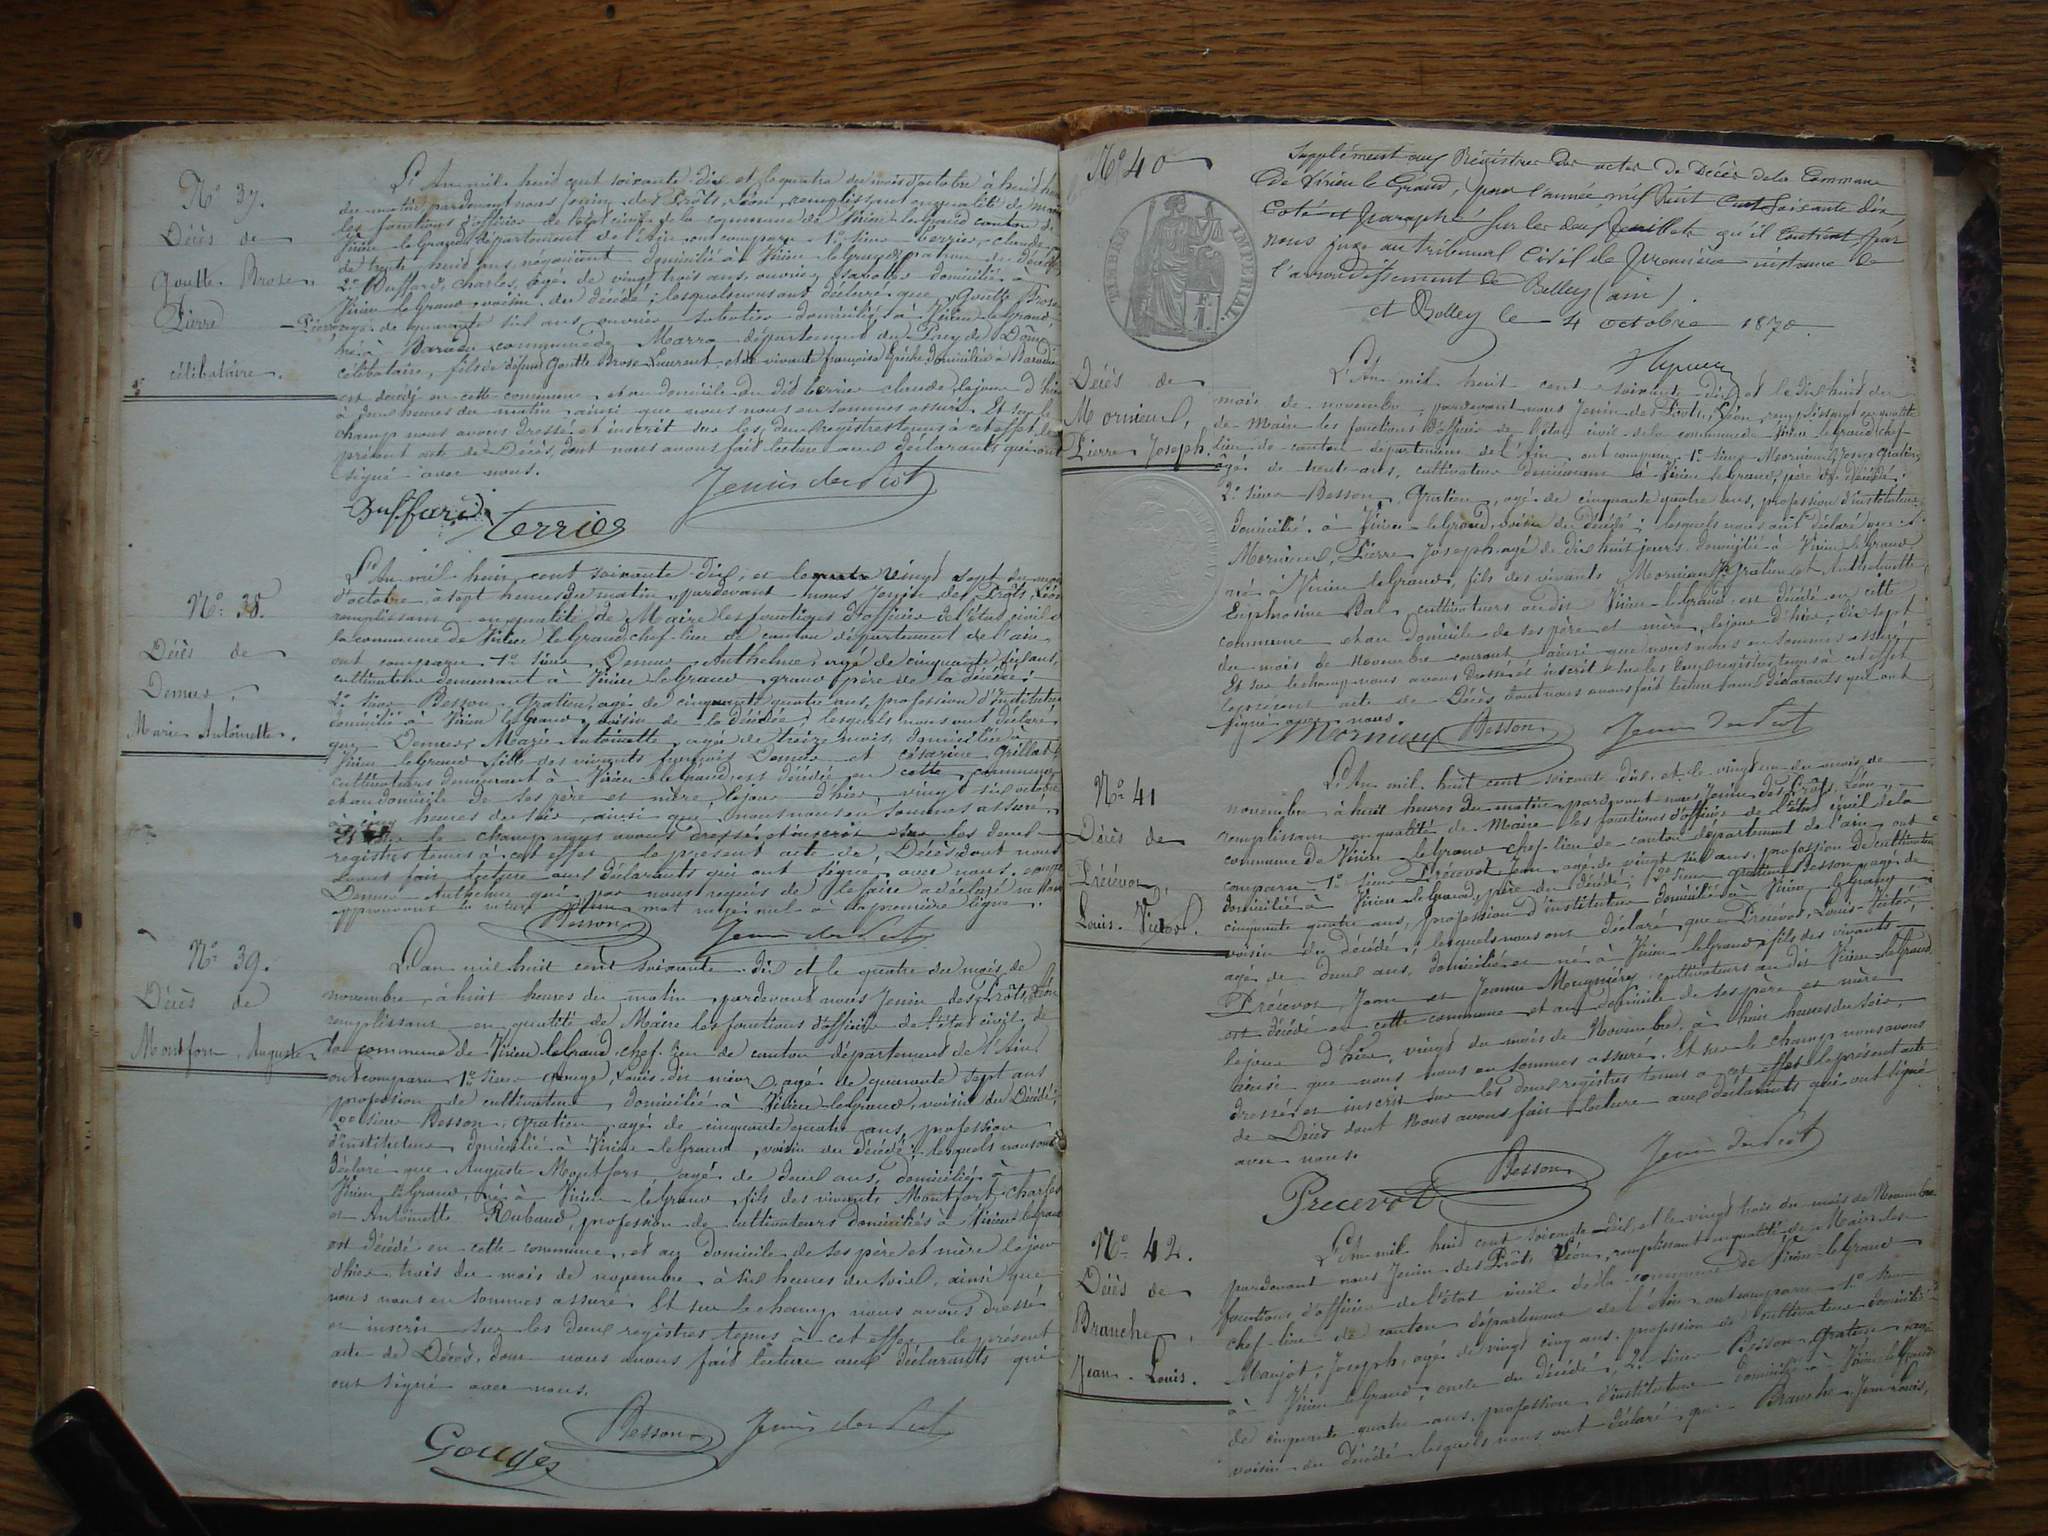 N° 37.
Décès de
Goutte Brose
Pierre
célibataire.
L'An mil huit cent soixante dix et le quatre du mois d'octobre à huit heures
du matin, pardevant nous Jenin des Prôts, Léon, remplissant en qualité de maire
les fonctions d'officier de l'état civil de la commune de Virieu le Grand canton de
Virieu le Grand département de l'Ain, ont comparu 1° sieur Terrier, claude
de trente huit ans, domicilié à Virieu le Grand, patron du décédé
2° Buffard, Charles, âgé de vingt trois ans, ouvrier sabotier domicilié à
Virieu le Grand voisin du décédé; lesquels nous ont déclaré que Goutte Brose
Pierre âgé de quarante six ans, ouvrier sabotier domicilié à Virieu le Grand,
né à commune de département du Puy de Dôme
célibataire, fils de défunt Goutte Brose Laurent et de vivante françoise domiciliée à
est décédé en cette commune et au domicile du dit Terrier claude, le jour d'hier
à deux heures du matin, ainsi que nous nous en sommes assuré. Et sur le
champ nous avons dressé et inscrit sur les deux registres tenus à cet effet le
présent acte de Décès, dont nous avons fait lecture aux déclarants qui ont
signé avec nous.
Jenin des Prôt
Buffard Terrier
N° 38.
Décès de
Demeur
Marie Antoinette.
L'An mil huit cent soixante dix, et le quatre vingt sept du mois
d'octobre, à sept heures du matin, pardevant nous Jenin des Prôts, Léon
remplissant en qualité de Maire les fonctions d'officier de l'état civil de
la commune de Virieu le Grand chef-lieu de canton département de l'ain
ont comparu 1° sieur Demeur Anthelme, âgé de cinquante six ans,
cultivateur demeurant à Virieu le Grand, grand père de la décédée;
2° sieur Besson, Gratien, âgé de cinquante quatre ans, profession d'Instituteur
domicilié à Virieu le Grand, voisin de la décédée; lesquels nous ont déclaré
que Demeur Marie Antoinette, âgée de treize mois, domiciliée à
Virieu le Grand fille des vivants françois Demeur et césarine Grillat
cultivateurs demeurant à Virieu le Grand est décédée en cette commune
et au domicile de ses père et mère, le jour d'hier vingt six octobre
à cinq heures du soir, ainsi que nous nous en sommes assuré.
Et sur le champ nous avons dressé et inscrit sur les deux
registres tenus à cet effet le présent acte de Décès dont nous
avons fait lecture aux déclarants qui ont signé avec nous, excepté
Demeur Anthelme qui, par nous requis de le faire a déclaré ne savoir
approuvons la rature d'un mot rayé nul à la première ligne.
Besson Jenin des Prôt
N° 39.
Décès de
Montfort, Auguste
L'an mil huit cent soixante dix et le quatre du mois de
novembre, à huit heures du matin, pardevant nous Jenin des Prôts, Léon
remplissant en qualité de Maire les fonctions d'officier de l'état civil de
la commune de Virieu le Grand, chef-lieu de canton département de l'Ain,
ont comparu 1° sieur Gouge, Louis, âgé de quarante sept ans
profession de cultivateur, domicilié à Virieu le Grand, voisin du Décédé,
2° sieur Besson, Gratien, âgé de cinquante quatre ans, profession
d'instituteur, domicilié à Virieu le Grand, voisin du décédé; lesquels nous ont
déclaré que Auguste Montfort, âgé de deux ans, domicilié à
Virieu le Grand, né à Virieu le Grand, fils des vivants Montfort, Charles
et Antoinette Rubaud, profession de cultivateurs domiciliés à Virieu le Grand
est décédé en cette commune, et au domicile de ses père et mère le jour
d'hier trois du mois de novembre, à six heures du soir, ainsi que
nous nous en sommes assuré. Et sur le champ nous avons dressé
et inscrit sur les deux registres tenus à cet effet le présent
acte de Décès, dont nous avons fait lecture aux déclarants qui
ont signé avec nous.
Gouges Besson Jenin des Prôt
N° 40
TIMBRE IMPÉRIAL
Supplément aux Régistres des actes de Décès de la Commune
de Virieu le Grand, pour l'année mil huit Cent Soixante dix,
Coté et Paraphé sur les deux feuillets qu'il Contient, par
nous juge au tribunal Civil de première instance de
l'arrondissement de Belley (ain).
A Belley le 4 octobre 1870.
Décès de
Mornieux,
Pierre Joseph.
L'An mil huit cent soixante dix et le dix huit du
mois de novembre, pardevant nous Jenin des Prôts, Léon, remplissant en qualité
de Maire les fonctions d'officier de l'état civil de la commune de Virieu le Grand chef-
lieu de canton département de l'Ain, ont comparu 1° sieur Mornieux, Gratien,
âgé de trente ans, cultivateur demeurant à Virieu le Grand, père du décédé;
2° sieur Besson, Gratien, âgé de cinquante quatre ans, profession d'instituteur
domicilié à Virieu le Grand, voisin du décédé; lesquels nous ont déclaré que
Mornieux, Pierre Joseph âgé de dix huit jours, domicilié à Virieu le Grand
né à Virieu le Grand, fils des vivants Mornieux Gratien et
Euphrosine Bal, cultivateurs au dit Virieu le Grand est décédé en cette
commune et au domicile de ses père et mère, le jour d'hier, dix sept
du mois de Novembre courant, ainsi que nous nous en sommes assuré
Et sur le champ nous avons dressé et inscrit sur les deux registres tenus à cet effet
le présent acte de Décès, dont nous avons fait lecture aux déclarants qui ont
signé avec nous.
Mornieux Besson Jenin des Prôt
N° 41
Décès de
Précevot
Louis-Victor.
L'An mil huit cent soixante dix, et le vingt un du mois de
novembre à huit heures du matin, pardevant nous Jenin des Prôts, Léon,
remplissant en qualité de Maire les fonctions d'officier de l'état civil de la
commune de Virieu le Grand chef-lieu de canton département de l'ain, ont
comparu 1° sieur Précevot Jean, âgé de vingt six ans, profession de cultivateur
domicilié à Virieu le Grand, père du décédé; 2° sieur Gratien Besson, âgé de
cinquante quatre ans, profession d'instituteur domicilié à Virieu le Grand
voisin du décédé; lesquels nous ont déclaré que Précevot, Louis-Victor,
âgé de deux ans, domicilié et né à Virieu le Grand, fils des vivants
Précevot Jean et Jeanne cultivateurs au dit Virieu le Grand
est décédé en cette commune et au domicile de ses père et mère
le jour d'hier, vingt du mois de Novembre, à huit heures du soir,
ainsi que nous nous en sommes assuré. Et sur le champ nous avons
dressé et inscrit sur les deux registres tenus à cet effet le présent acte
de Décès dont nous avons fait lecture aux déclarants qui ont signé
avec nous.
Precevot Besson Jenin des Prôt
N° 42.
Décès de
Branche,
Jean-Louis.
L'An mil huit cent soixante dix, et le vingt trois du mois de Novembre
pardevant nous Jenin des Prôts Léon, remplissant en qualité de Maire les
fonctions d'officier de l'état civil de la commune de Virieu le Grand
chef-lieu de canton département de l'Ain ont comparu 1° sieur
Maujot, Joseph, âgé de vingt cinq ans, profession de cultivateur domicilié
à Virieu le Grand, oncle du décédé; 2° sieur Besson, Gratien, âgé
de cinquante quatre ans, profession d'instituteur domicilié à Virieu le Grand
voisin du décédé lesquels nous ont déclaré que Branche, Jean Louis,